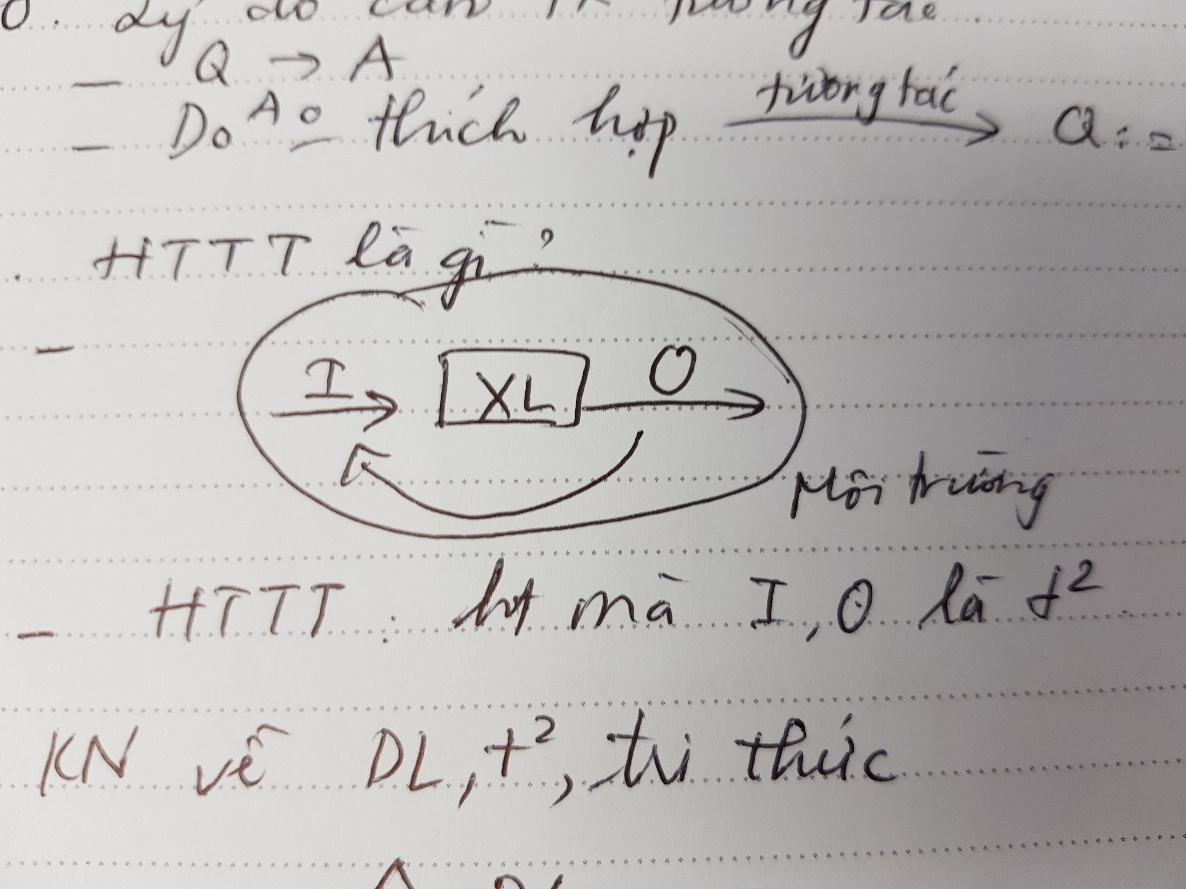 Lý do cần TK tương tác
- Q → A
- Do A o thích hợp tương tác → Q :=
. HTTT là gì?
-
I XL O
Môi trường
- HTTT : ht mà I, O là t²
KN về DL, t², tri thức